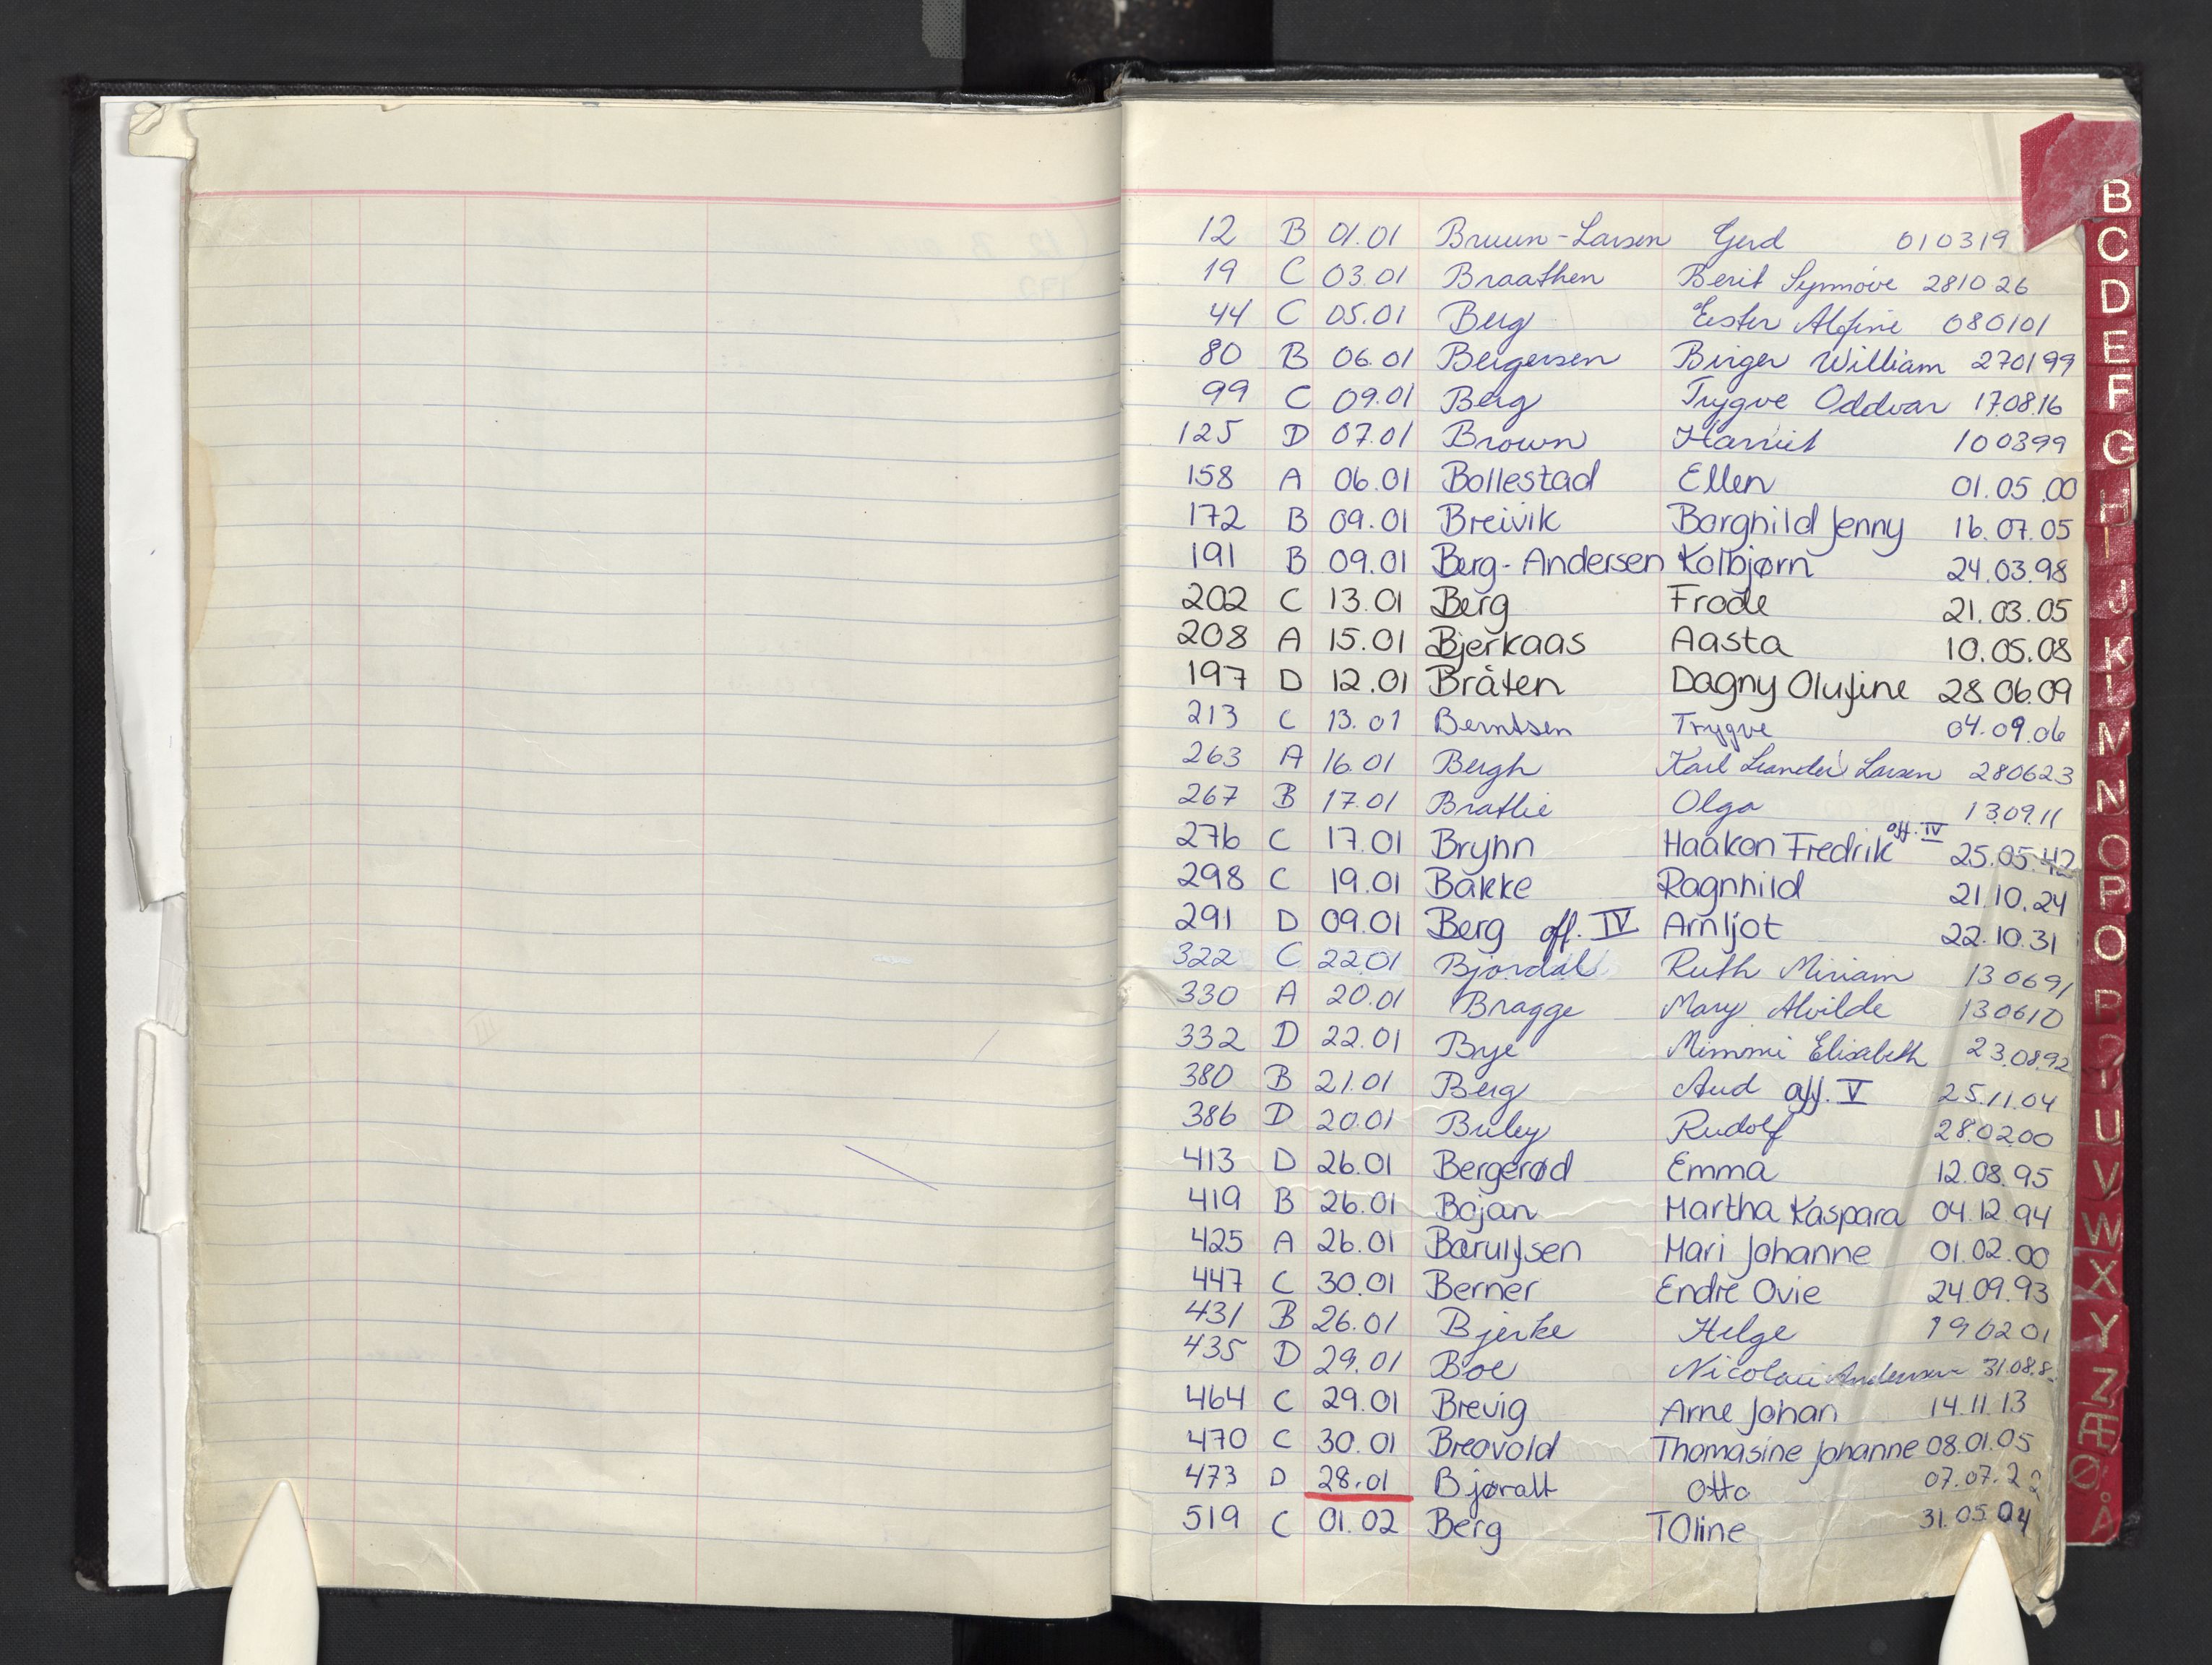 12 B 01.01 Bruun-Larsen Gerd 010319
19 C 03.01 Braathen Berit Synnøve 281026
44 C 05.01 Berg Ester Alfine 080101
80 B 06.01 Bergersen Birger William 270199
99 C 09.01 Berg Trygve Oddvar 170816
125 D 07.01 Brown Harriet 100399
158 A 06.01 Bollestad Ellen 01.05.00
172 B 09.01 Breivik Borghild Jenny 16.07.05
191 B 09.01 Berg-Andersen Kolbjørn 24.03.98
202 C 13.01 Berg Frode 21.03.05
208 A 15.01 Bjerkaas Aasta 10.05.08
197 D 12.01 Bråten Dagny Olufine 28.06.09
213 C 13.01 Berntsen Trygve 04.09.06
263 A 16.01 Bergh Karl Leander Larsen 280623
267 B 17.01 Bratlie Olga 130911
276 C 17.01 Bryhn Haakon Fredrik off. IV 25.05.42
298 C 19.01 Bakke Ragnhild 21.10.24
291 D 09.01 Berg off. IV Arnljot 22.10.31
322 C 22.01 Bjordal Ruth Miriam 130691
330 A 20.01 Bragge Mary Alvilde 130610
332 D 22.01 Bye Mimmi Elisabeth 230892
380 B 21.01 Berg Aud off. V 25.11.04
386 D 20.01 Buley Rudolf 280200
413 D 26.01 Bergerød Emma 12.08.95
419 B 26.01 Bojan Martha Kaspara 04.12.94
425 A 26.01 Barulfsen Mari Johanne 01.02.00
447 C 30.01 Berner Endre Ovie 24.09.93
431 B 26.01 Bjerke Helge 190201
435 D 29.01 Boe Nicolai Andersen 31.08.8
464 C 29.01 Brevig Arne Johan 14.11.13
470 C 30.01 Breavold Thomasine Johanne 08.01.05
473 D 28.01 Bjøralt Otto 07.07.22
519 C 01.02 Berg TOline 31.05.04
B
C
D
E
F
G
H
I
J
K
L
M
N
O
P
Q
R
U
V
W
X
Y
Z
Æ
Ø
Å